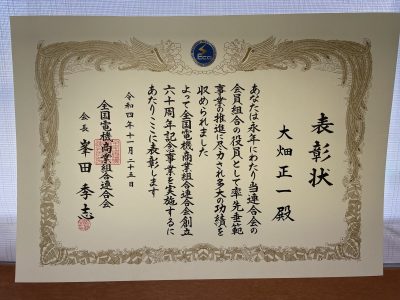 表彰状
大畑正一殿
あなたは永年にわたり当連合会の
会員組合の役員として率先垂範
事業の推進に尽力され多大の功績を
収められました
よって全国電機商業組合連合会創立
六十周年記念事業を実施するに
あたりここに表彰します
令和四年十一月二十五日
全国電機商業組合連合会
会長 峯田季志